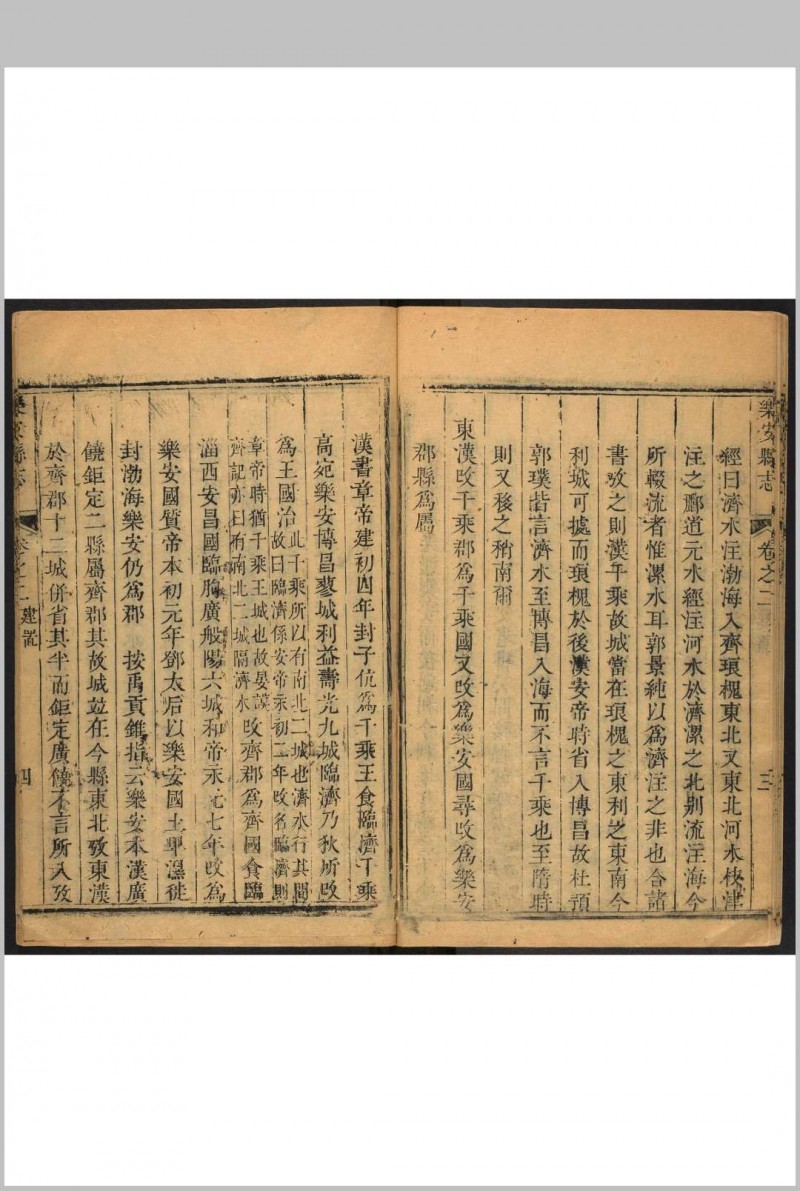 樂安縣志
卷之二
三
經曰濟水注渤海入齊琅槐東北又東北河水枝津
注之酈道元水經注河水於濟漯之北別流注海今
所輟流者惟漯水耳郭景純以為濟注之非也合諸
書攷之則漢千乘故城當在琅槐之東利之東南今
利城可據而琅槐於後漢安帝時省入博昌故杜預
郭璞皆言濟水至博昌入海而不言千乘也至隋時
則又移之稍南爾
東漢改千乘郡為千乘國又改為樂安國尋改為樂安
郡縣為屬
漢書章帝建初四年封子伉為千乘王食臨濟千乘
高宛樂安博昌蓼城利益壽光九城臨濟乃狄所改
為王國治此千乘所以有南北二城也濟水行其間
故曰臨濟係安帝永初二年改名臨濟則
章帝時猶千乘王城也故晏謨
齊記亦曰有南北二城隔濟水改齊郡為齊國食臨
淄西安昌國臨朐廣般陽六城和帝永元七年改為
樂安國質帝本初元年鄧太后以樂安國土卑溼徙
封渤海樂安仍為郡 按禹貢錐指云樂安本漢廣
饒鉅定二縣屬齊郡其故城並在今縣東北攷東漢
於齊郡十二城併省其半而鉅定廣饒不言所入攷
樂安縣志
卷之二
建置
四